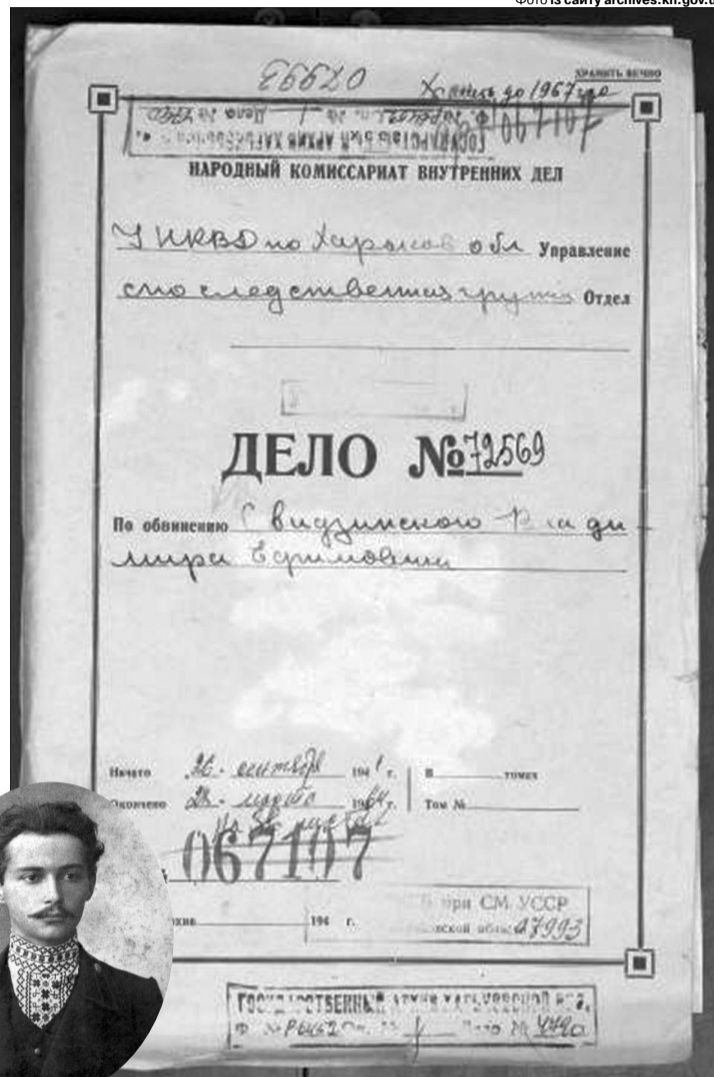 Фото із сайту archives.kh.gov.u
07993
ХРАНИТЬ ВЕЧНО
Хранить до 1967 года
ГОСУДАРСТВЕННЫЙ АРХИВ ХАРЬКОВСКОЙ
Дело №
НАРОДНЫЙ КОМИССАРИАТ ВНУТРЕННИХ ДЕЛ
УНКВД по Харьков обл Управление
след­ственная группа Отдел
ДЕЛО № 72569
По обвинению Свидзинского Влади
мира Ефимовича
Начато 26 сентября 1941 г. В томах
Окончено 28 марта 1964 г. Том №
067107
194 г.
при СМ. УССР
07993
ГОСУДАРСТВЕННЫЙ АРХИВ ХАРЬКОВСКОЙ
Ф № Р6452 Дело № 4790